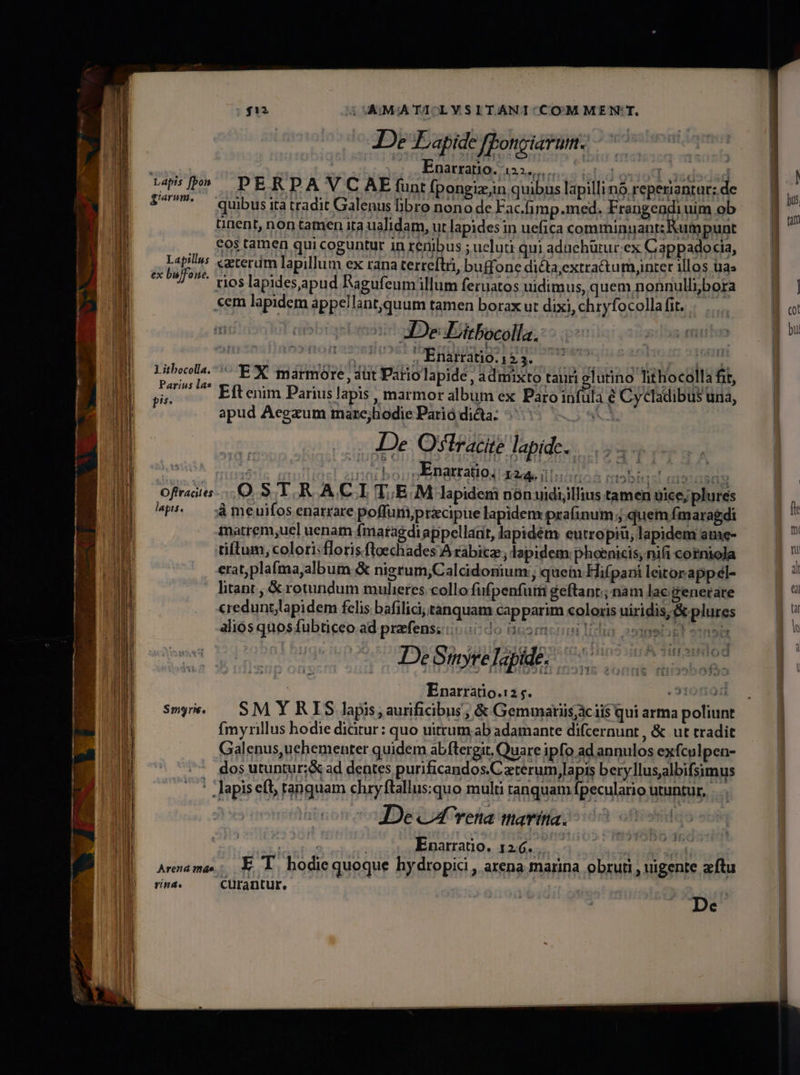 512 AMATI LVSITANI COMMENT.
De Lapide ſpongiarum.
Enarratio. 122.
Lapis ſpon
giarum.
PERPAVCAE ſunt ſpongiæ, in quibus lapilli nõ reperiantur: de
quibus ita tradit Galenus libro nono de Fac. ſimp. med. Frangendi uim ob
tinent, non tamen ita ualidam, ut lapides in ueſica comminuant: Rumpunt
eos tamen qui coguntur in renibus; ueluti qui aduehũtur ex Cappadocia,
Lapillus
ex buffone.
cæterùm lapillum ex rana terreſtri, buffone dicta, extractum, inter illos ua=
rios lapides, apud Raguſeum illum ſeruatos uidimus, quem nonnulli, bora
cem lapidem appellant, quum tamen borax ut dixi, chryſocolla ſit.
De Lithocolla.
Enarratio. 123.
Lithocolla.
Parius la=
pis.
EX marmore, aut Pario lapide, admixto tauri glutino lithocolla fit,
Eſt enim Parius lapis, marmor album ex Paro inſula è Cycladibus una,
apud Aegæum mare, hodie Pariò dicta:
De Oſtracite lapide.
Enarratio. 124.
Oſtracites
lapis.
OSTRACITEM lapidem nõn uidi, illius tamen uice, plures
à me uiſos enarrare poſſum, præcipue lapidem praſinum, quem ſmaragdi
matrem, uel uenam ſmaragdi appellant, lapidem eutropiũ, lapidem ame-
tiſtum, coloris floris ſtœchades Arabicæ, lapidem phœnicis, niſi corniola
erat, plaſma, album & nigrum, Calcidonium, quem Hiſpani leitor appel-
litant, & rotundum mulieres collo ſuſpenſum geſtant, nam lac generare
credunt, lapidem felis baſilici, tanquam capparim coloris uiridis, & plures
aliòs quos ſubticeo ad præſens.
De Smyre lapide.
Enarratio. 125.
Smyris.
SMYRIS lapis, aurificibus, & Gemmariis, ac iis qui arma poliunt
ſmyrillus hodie dicitur: quo uitrum ab adamante diſcernunt, & ut tradit
Galenus, uehementer quidem abſtergit. Quare ipſo ad annulos exſculpen-
dos utuntur: & ad dentes purificandos. Cæterum, lapis beryllus, albiſsimus
lapis eſt, tanquam chryſtallus: quo multi tanquam ſpeculario utuntur,
De Arena marina.
Enarratio. 126.
Arena ma=
rina.
ET hodie quoque hydropici, arena marina obruti, uigente æſtu
curantur.
De